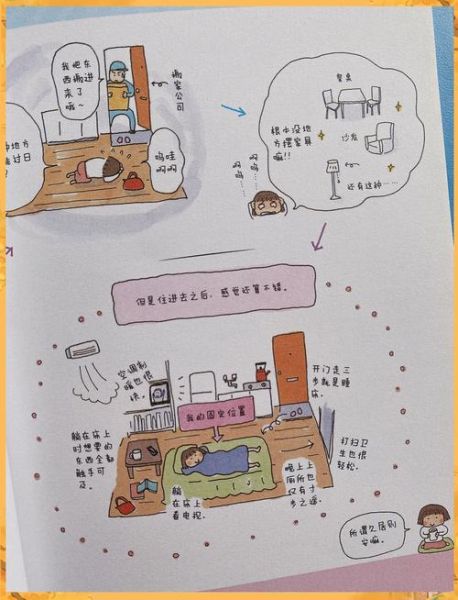 我把东
西搬进
来了
哦~
搬家公司
地方
计日
呜哇
啊啊
餐桌
沙发
还有这种……
根本没地
方摆家具
嘛!!
呜呜……
呜呜……
但是住进去之后,感觉还算不错。
空调制
暖也很
快。
开门走三
步就是睡
床。
我的固定位置
躺在床上
时想要的
东西全都
触手可
及。
打扫卫
生也很
轻松。
晚上上
厕所也
仅有寸
步之遥。
躺在床上
看电视。
所谓久居则
安嘛。